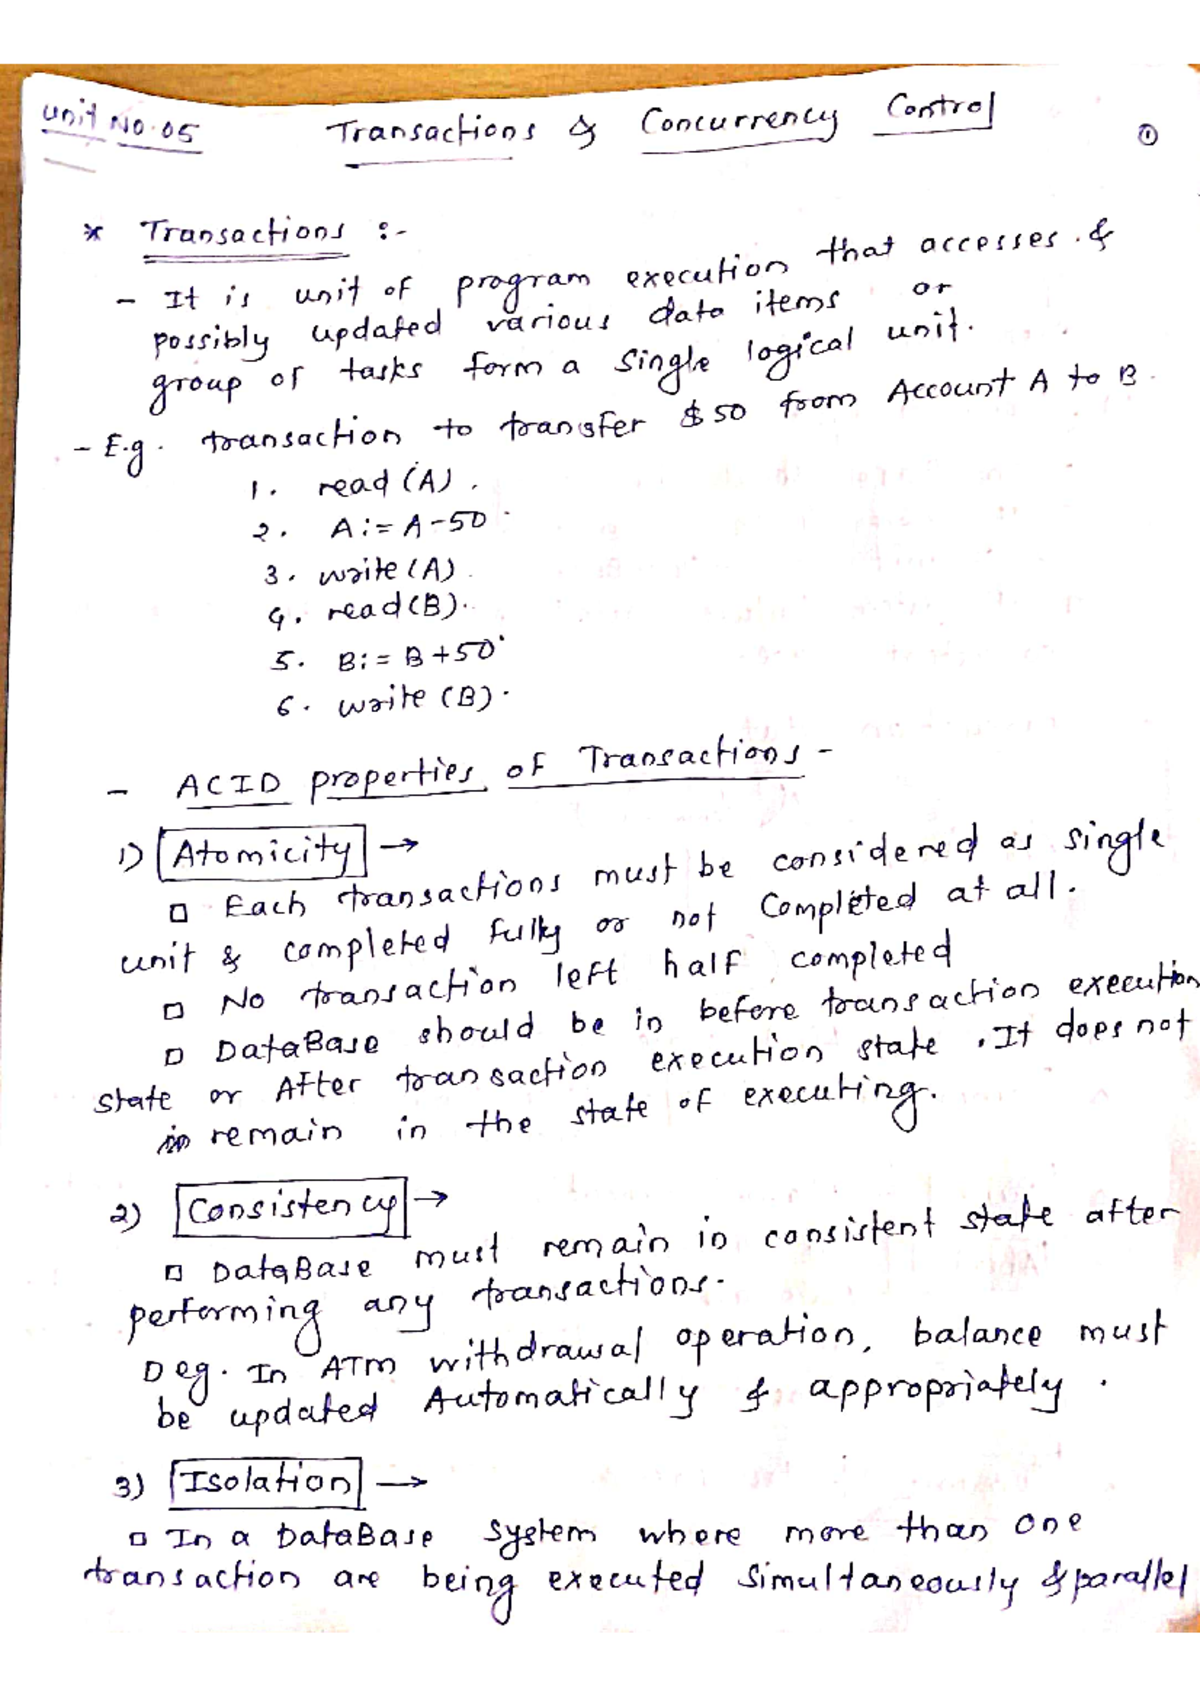 Unit No. 05 Transactions & Concurrency Control ①
* Transactions :-
- It is unit of program execution that accesses . &
possibly updated various data items or
group of tasks form a single logical unit.
- E.g. transaction to transfer $50 from Account A to B.
1. read (A).
2. A := A-50.
3. write (A).
4. read (B).
5. B := B+50.
6. write (B).
- ACID properties of Transactions -
1) Atomicity →
□ Each transactions must be considered as single
unit & completed fully or not completed at all.
□ No transaction left half completed
□ DataBase should be in before transaction execution
state or After transaction execution state . It does not
remain in the state of executing.
2) Consistency →
□ DataBase must remain in consistent state after
performing any transactions.
□ eg. In ATM withdrawal operation, balance must
be updated Automatically & appropriately .
3) Isolation →
□ In a DataBase system where more than one
transaction are being executed simultaneously & parallel